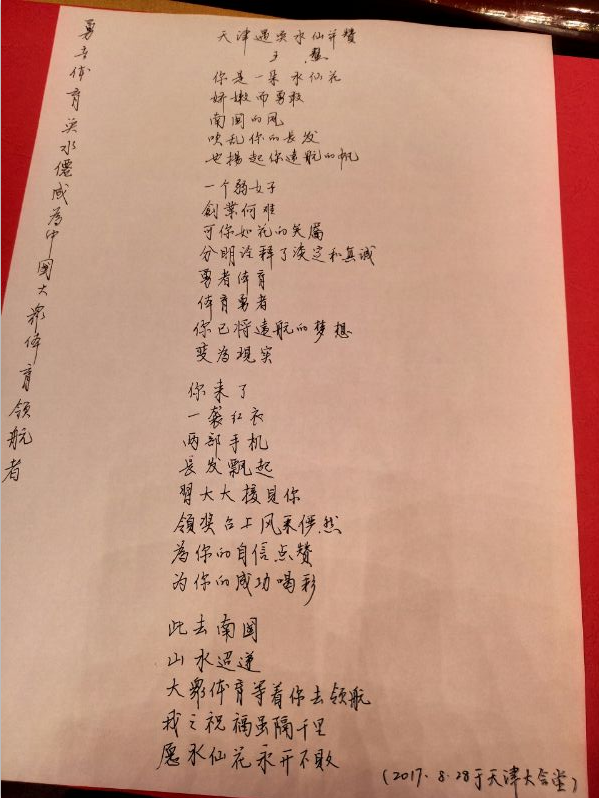 天津遇奕水仙并赞
你是一朵水仙花
娇嫩而勇敢
南国的风
吹乱你的長发
也揚起你遠航的帆
一个弱女子
創業何难
可你如花的笑靥
分明诠释了淡定和真诚
勇者体育
体育勇者
你已将遠航的梦想
变為現实
你来了
一袭红衣
两部手机
長发飘起
習大大接見你
领奖台上风采俨然
為你的自信点赞
为你的成功喝彩
此去南国
山水迢遥
大眾体育等着你去领航
我之祝福虽隔千里
愿水仙花永开不败
(2017.8.28于天津大会堂)
勇者体育奕水僊成為中國大眾体育领航者